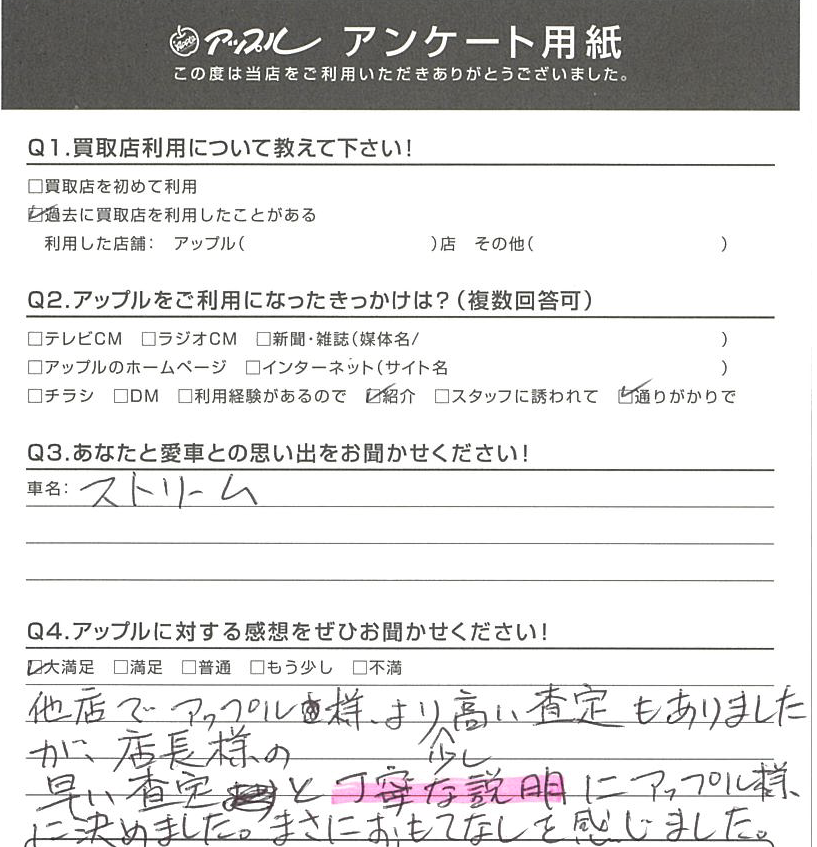 アップル アンケート用紙
この度は当店をご利用いただきありがとうございました。
Q1.買取店利用について教えて下さい!
□買取店を初めて利用
☑過去に買取店を利用したことがある
利用した店舗: アップル( )店 その他( )
Q2.アップルをご利用になったきっかけは?(複数回答可)
□テレビCM □ラジオCM □新聞・雑誌(媒体名/ )
□アップルのホームページ □インターネット(サイト名 )
□チラシ □DM □利用経験があるので ☑紹介 □スタッフに誘われて ☑通りがかりで
Q3.あなたと愛車との思い出をお聞かせください!
車名: ストリーム
Q4.アップルに対する感想をぜひお聞かせください!
☑大満足 □満足 □普通 □もう少し □不満
他店でアップル様より高い査定もありました
が、店長様の 少し
早い査定と丁寧な説明にアップル様
に決めました。まさにおもてなしを感じました。